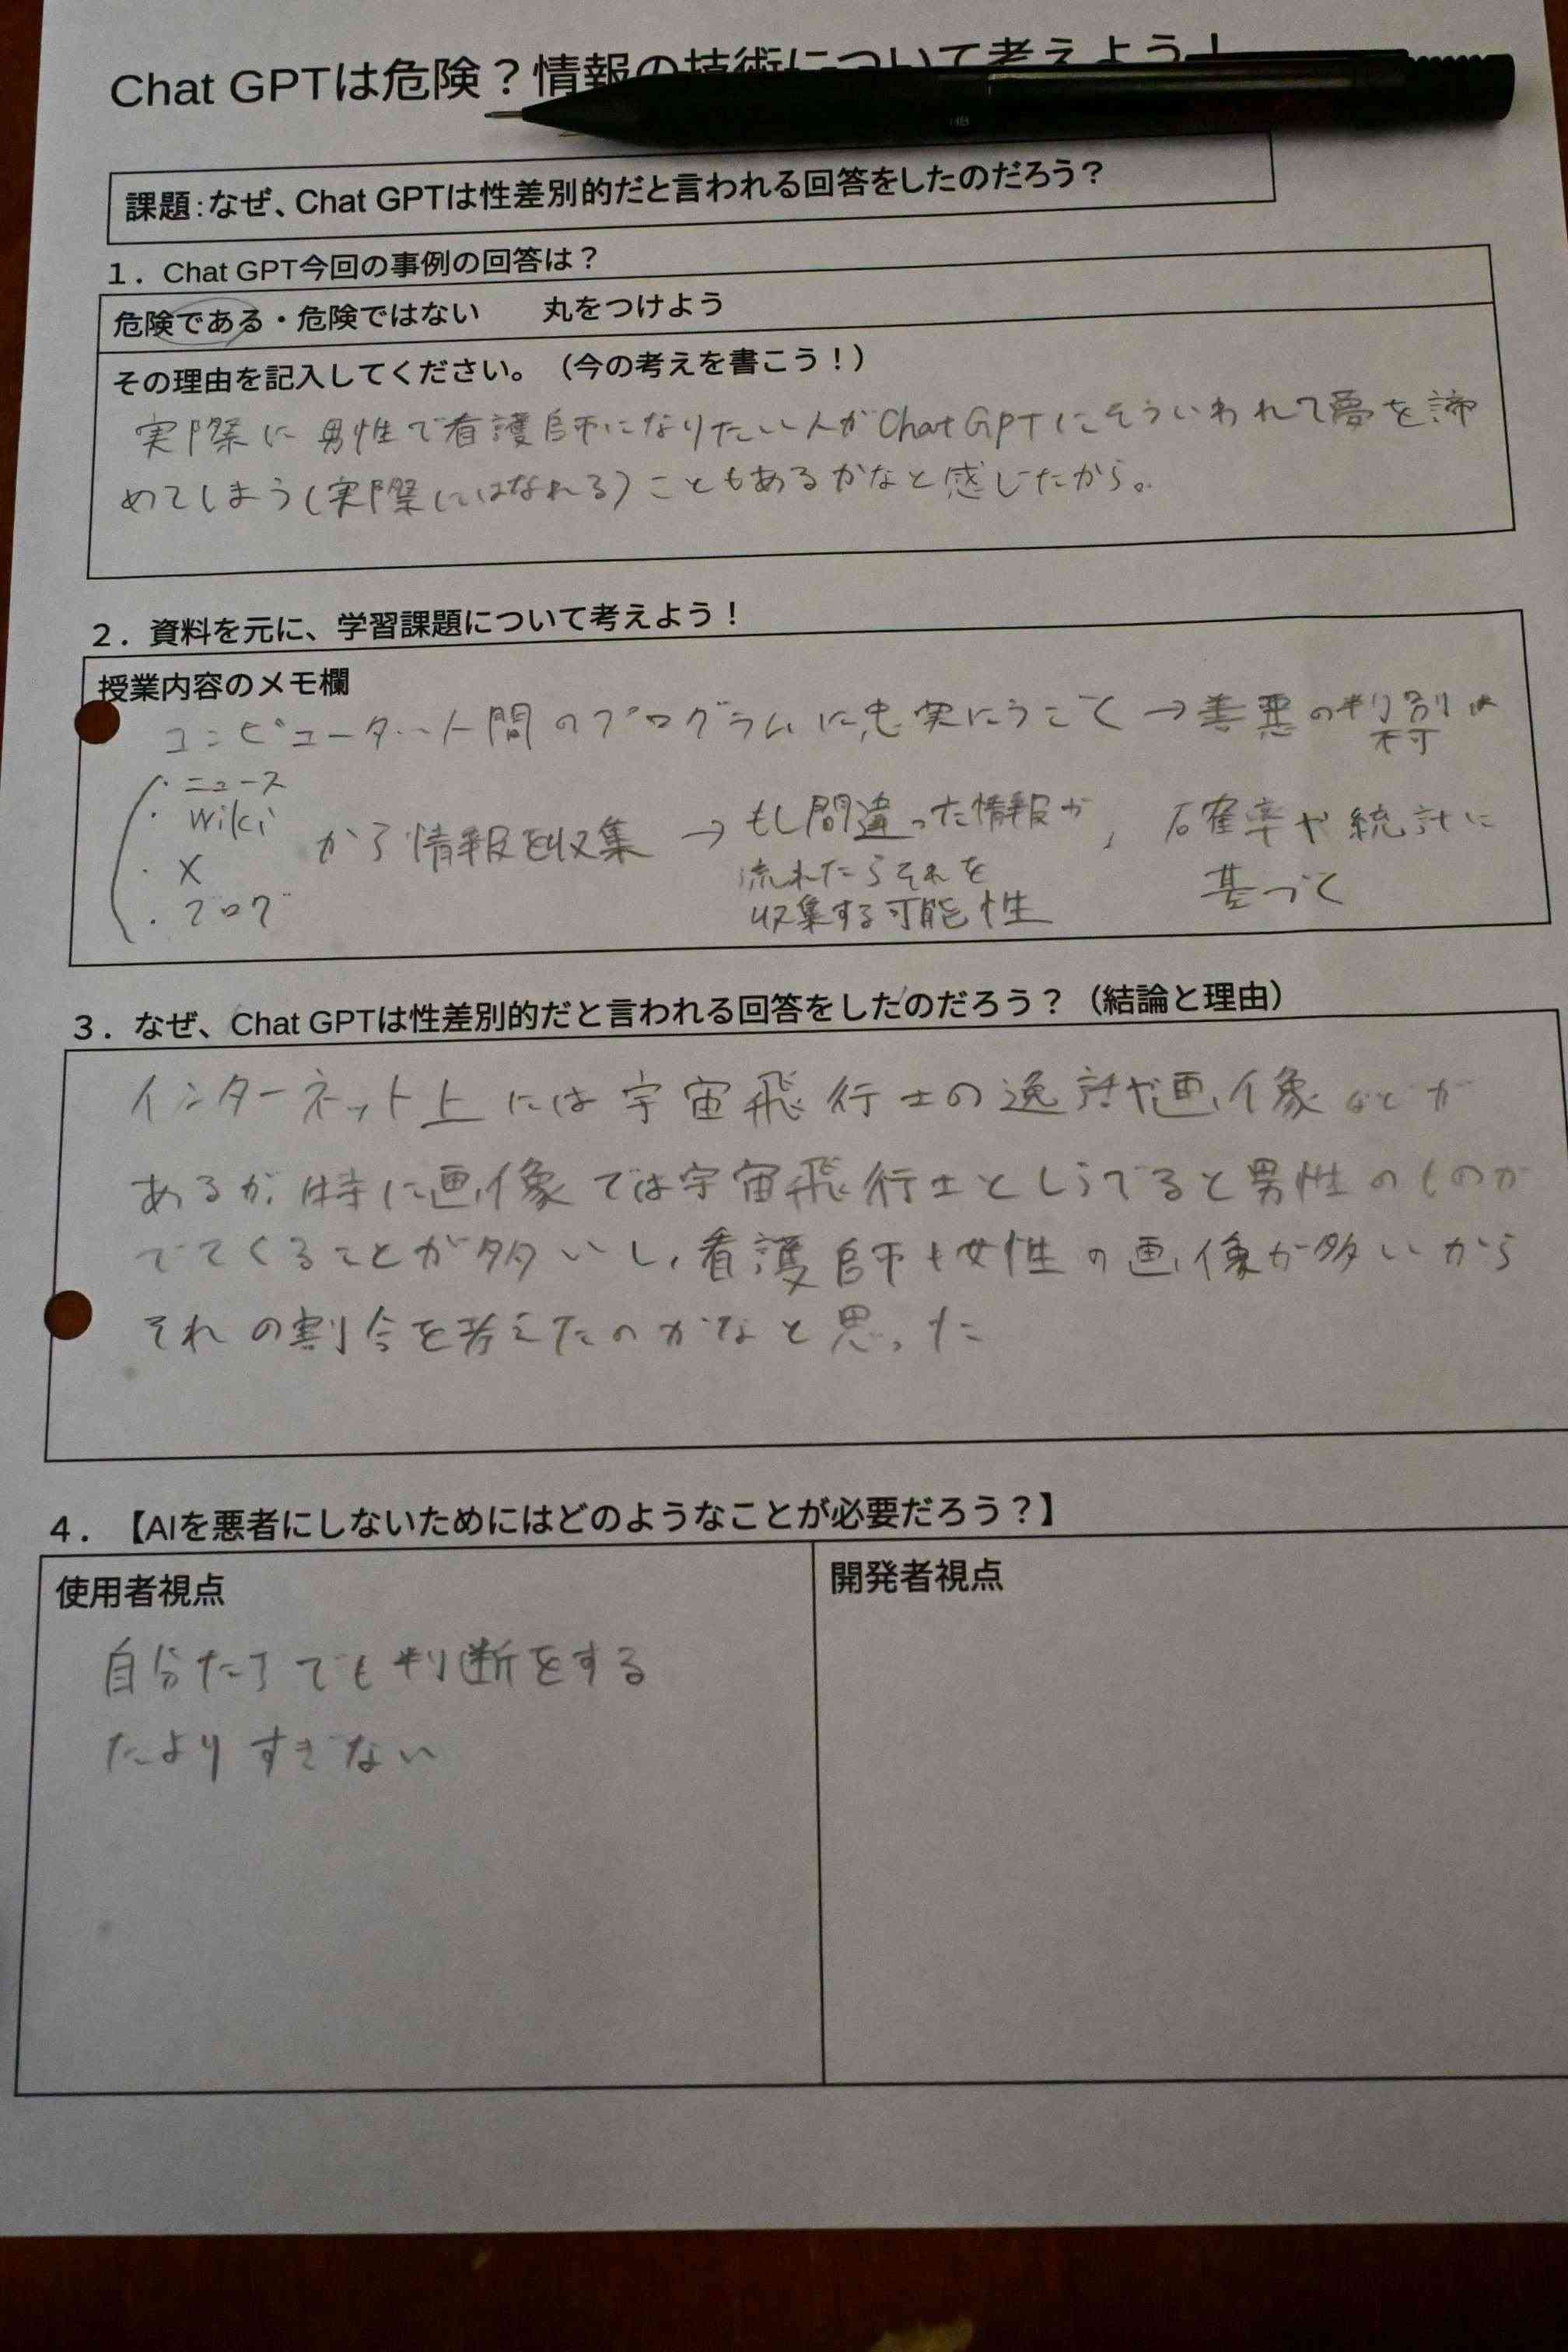 Chat GPTは危険？情報の技術について考えよう！
HB
課題：なぜ、Chat GPTは性差別的だと言われる回答をしたのだろう？
１．Chat GPT今回の事例の回答は？
危険である・危険ではない　　丸をつけよう
その理由を記入してください。（今の考えを書こう！）
実際に男性で看護師になりたい人がChat GPTにそういわれて夢を諦
めてしまう(実際にはなれる)こともあるかなと感じたから。
２．資料を元に、学習課題について考えよう！
授業内容のメモ欄
コンピューター…人間のプログラムに忠実にうごく→善悪の判別は
不可
・ニュース
・Wiki
・X
・ブログ
から情報を収集
→もし間違った情報が
流れたらそれを
収集する可能性
、確率や統計に
基づく
３．なぜ、Chat GPTは性差別的だと言われる回答をしたのだろう？（結論と理由）
インターネット上には宇宙飛行士の逸話や画像などが
あるが、特に画像では宇宙飛行士としらべると男性のものが
でてくることが多いし、看護師も女性の画像が多いから
それの割合を考えたのかなと思った
４．【AIを悪者にしないためにはどのようなことが必要だろう？】
使用者視点
自分たちでも判断をする
たよりすぎない
開発者視点